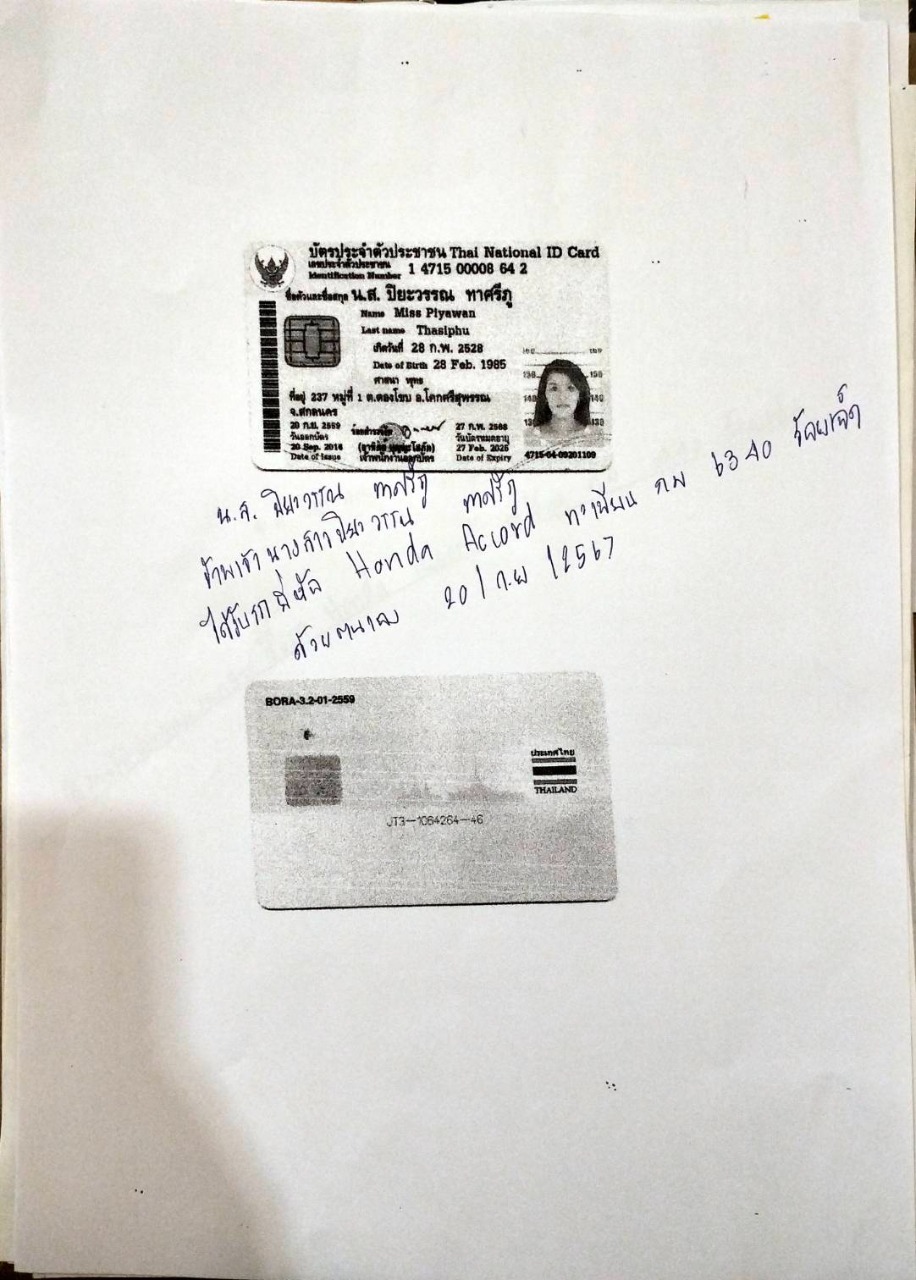 บัตรประจำตัวประชาชน Thai National ID Card
เลขประจำตัวประชาชน
Identification Number 1 4715 00008 64 2
ชื่อตัวและชื่อสกุล น.ส. ปิยะวรรณ ทาศรีภู
Name Miss Piyawan
Last name Thasiphu
เกิดวันที่ 28 ก.พ. 2528
Date of Birth 28 Feb. 1985
ศาสนา พุทธ
ที่อยู่ 237 หมู่ที่ 1 ต.ตองโขบ อ.โคกศรีสุพรรณ
จ.สกลนคร
20 ก.ย. 2559
วันออกบัตร
20 Sep. 2016
Date of Issue
เจ้าพนักงานออกบัตร
27 ก.พ. 2568
วันบัตรหมดอายุ
27 Feb. 2025
Date of Expiry
160 160
150 150
140 140
130 130
4715-04-09201109
น.ส. ปิยะวรรณ ทาศรีภู
ข้าพเจ้า นางสาวปิยะวรรณ ทาศรีภู
ได้รับรถยี่ห้อ Honda Accord ทะเบียน กพ 6340 ร้อยเอ็ด
ด้วยตนเอง 20/ก.ย/2567
BORA-3.2-01-2559
ประเทศไทย
THAILAND
JT3-1064264-46